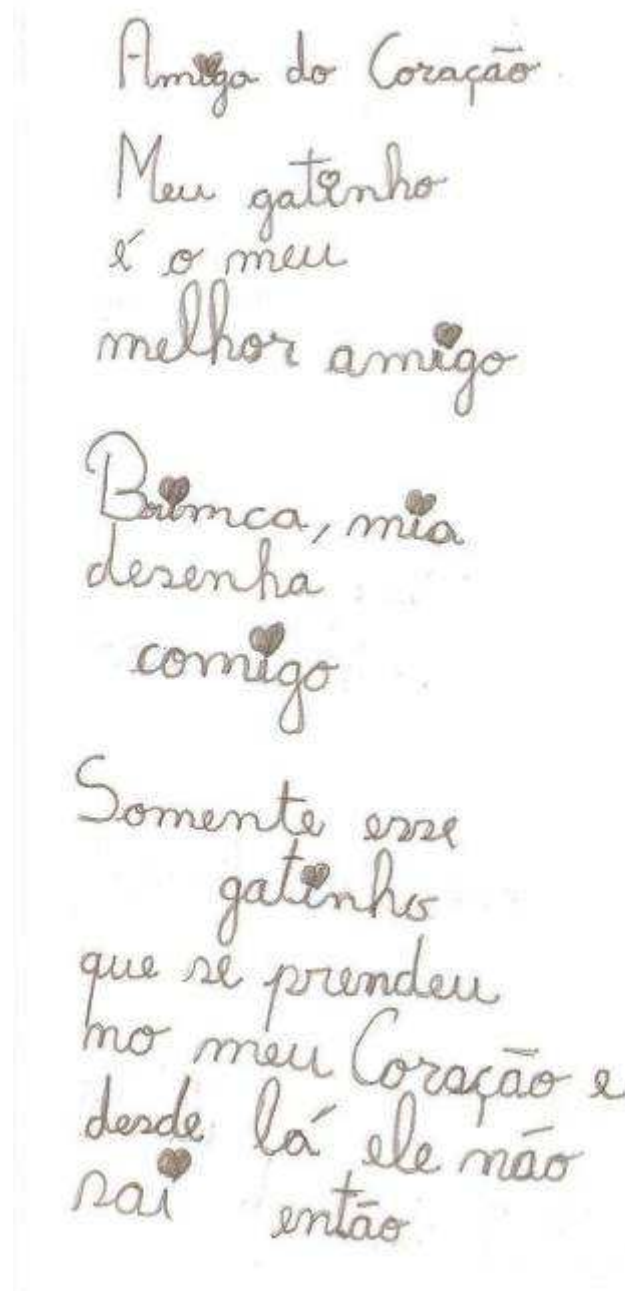 Amiga do Coração
Meu gatinho
é o meu
melhor amigo
Brinca, mia
desenha
comigo
Somente esse
gatinho
que se prendeu
no meu Coração e
desde lá ele não
sai então